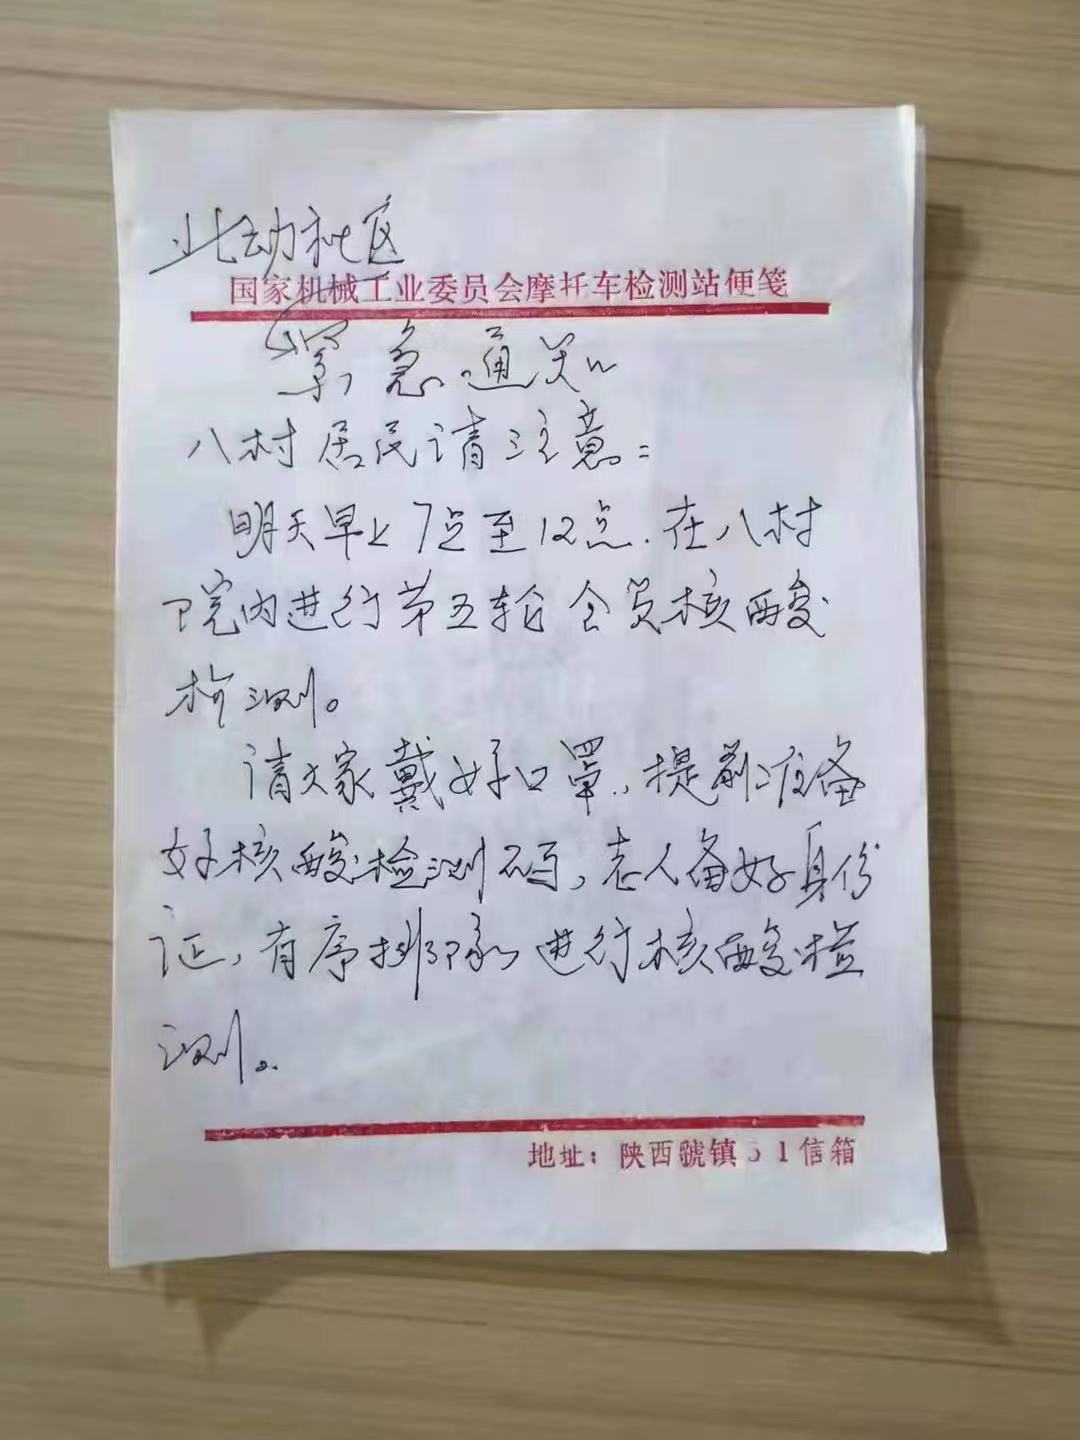 北动社区
国家机械工业委员会摩托车检测站便笺
紧急通知
八村居民请注意:
明天早上7点至12点.在八村
院内进行第五轮全员核酸
检测。
请大家戴好口罩,提前准备
好核酸检测码,老人备好身份
证,有序排队进行核酸检
测。
地址:陕西虢镇51信箱